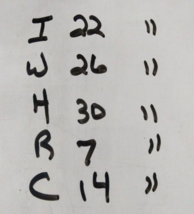 I 22 "
W 26 "
H 30 "
R 7 "
C 14 "